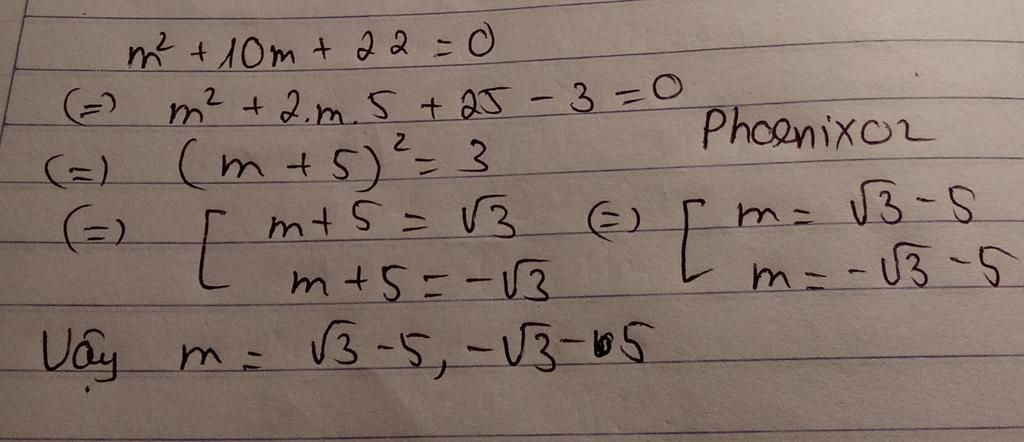 m² + 10m + 22 = 0
(=) m² + 2.m.5 + 25 - 3 = 0
Phoenix02
(=) (m + 5)² = 3
(=) [ m + 5 = √3 (=) [ m = √3 - 5
m + 5 = -√3 m = -√3 - 5
Vậy m = √3 - 5, -√3 - 5